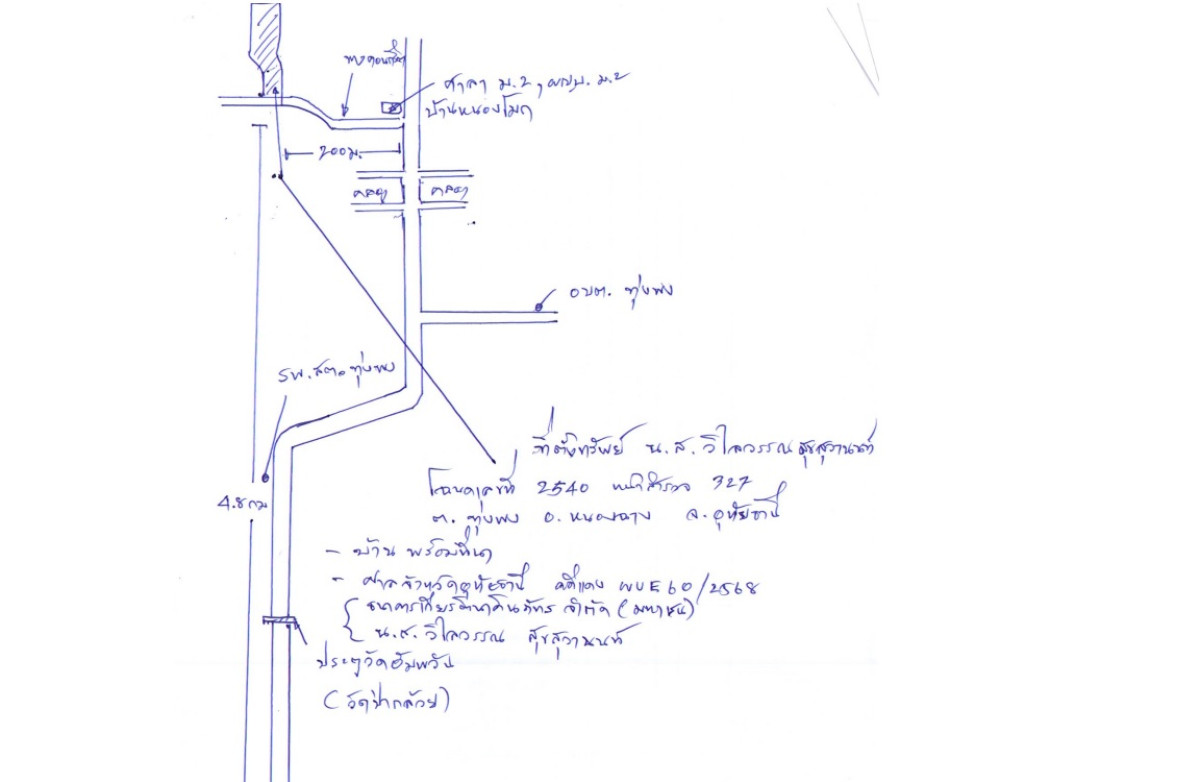 ทางคอนกรีต
ศาลา ม.2, ผญบ. ม.2
บ้านหนองโมก
200ม.
คลอง คลอง
อบต. ทุ่งพง
รพ.สต. ทุ่งพง
ที่ตั้งทรัพย์ น.ส. วิไลวรรณ สุขสุวานนท์
โฉนดเลขที่ 2540 หน้าสำรวจ 327
4.8 กม
ต. ทุ่งพง อ. หนองฉาง จ. อุทัยธานี
- บ้าน พร้อมที่นา
- ศาลจังหวัดอุทัยธานี คดีแดง ผบE60/2568
ธนาคารเกียรตินาคินภัทร จำกัด (มหาชน)
น.ส. วิไลวรรณ สุขสุวานนท์
ประตูวัดอัมพวัน
(วัดป่ากล้วย)